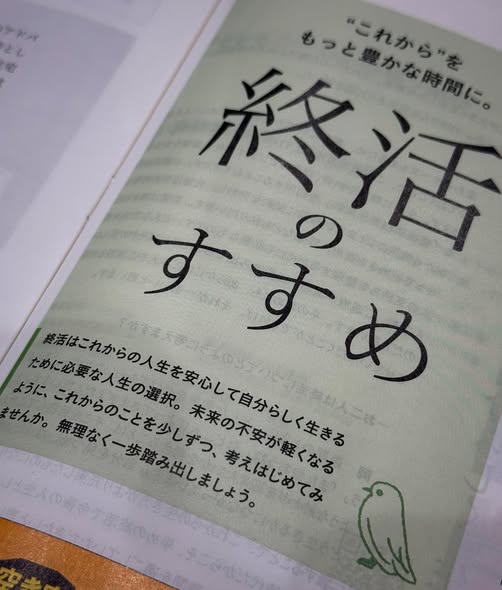 "これから"を
もっと豊かな時間に。
終活
の
すすめ
終活はこれからの人生を安心して自分らしく生きる
ために必要な人生の選択。未来の不安が軽くなる
ように、これからのことを少しずつ、考えはじめてみ
ませんか。無理なく一歩踏み出しましょう。